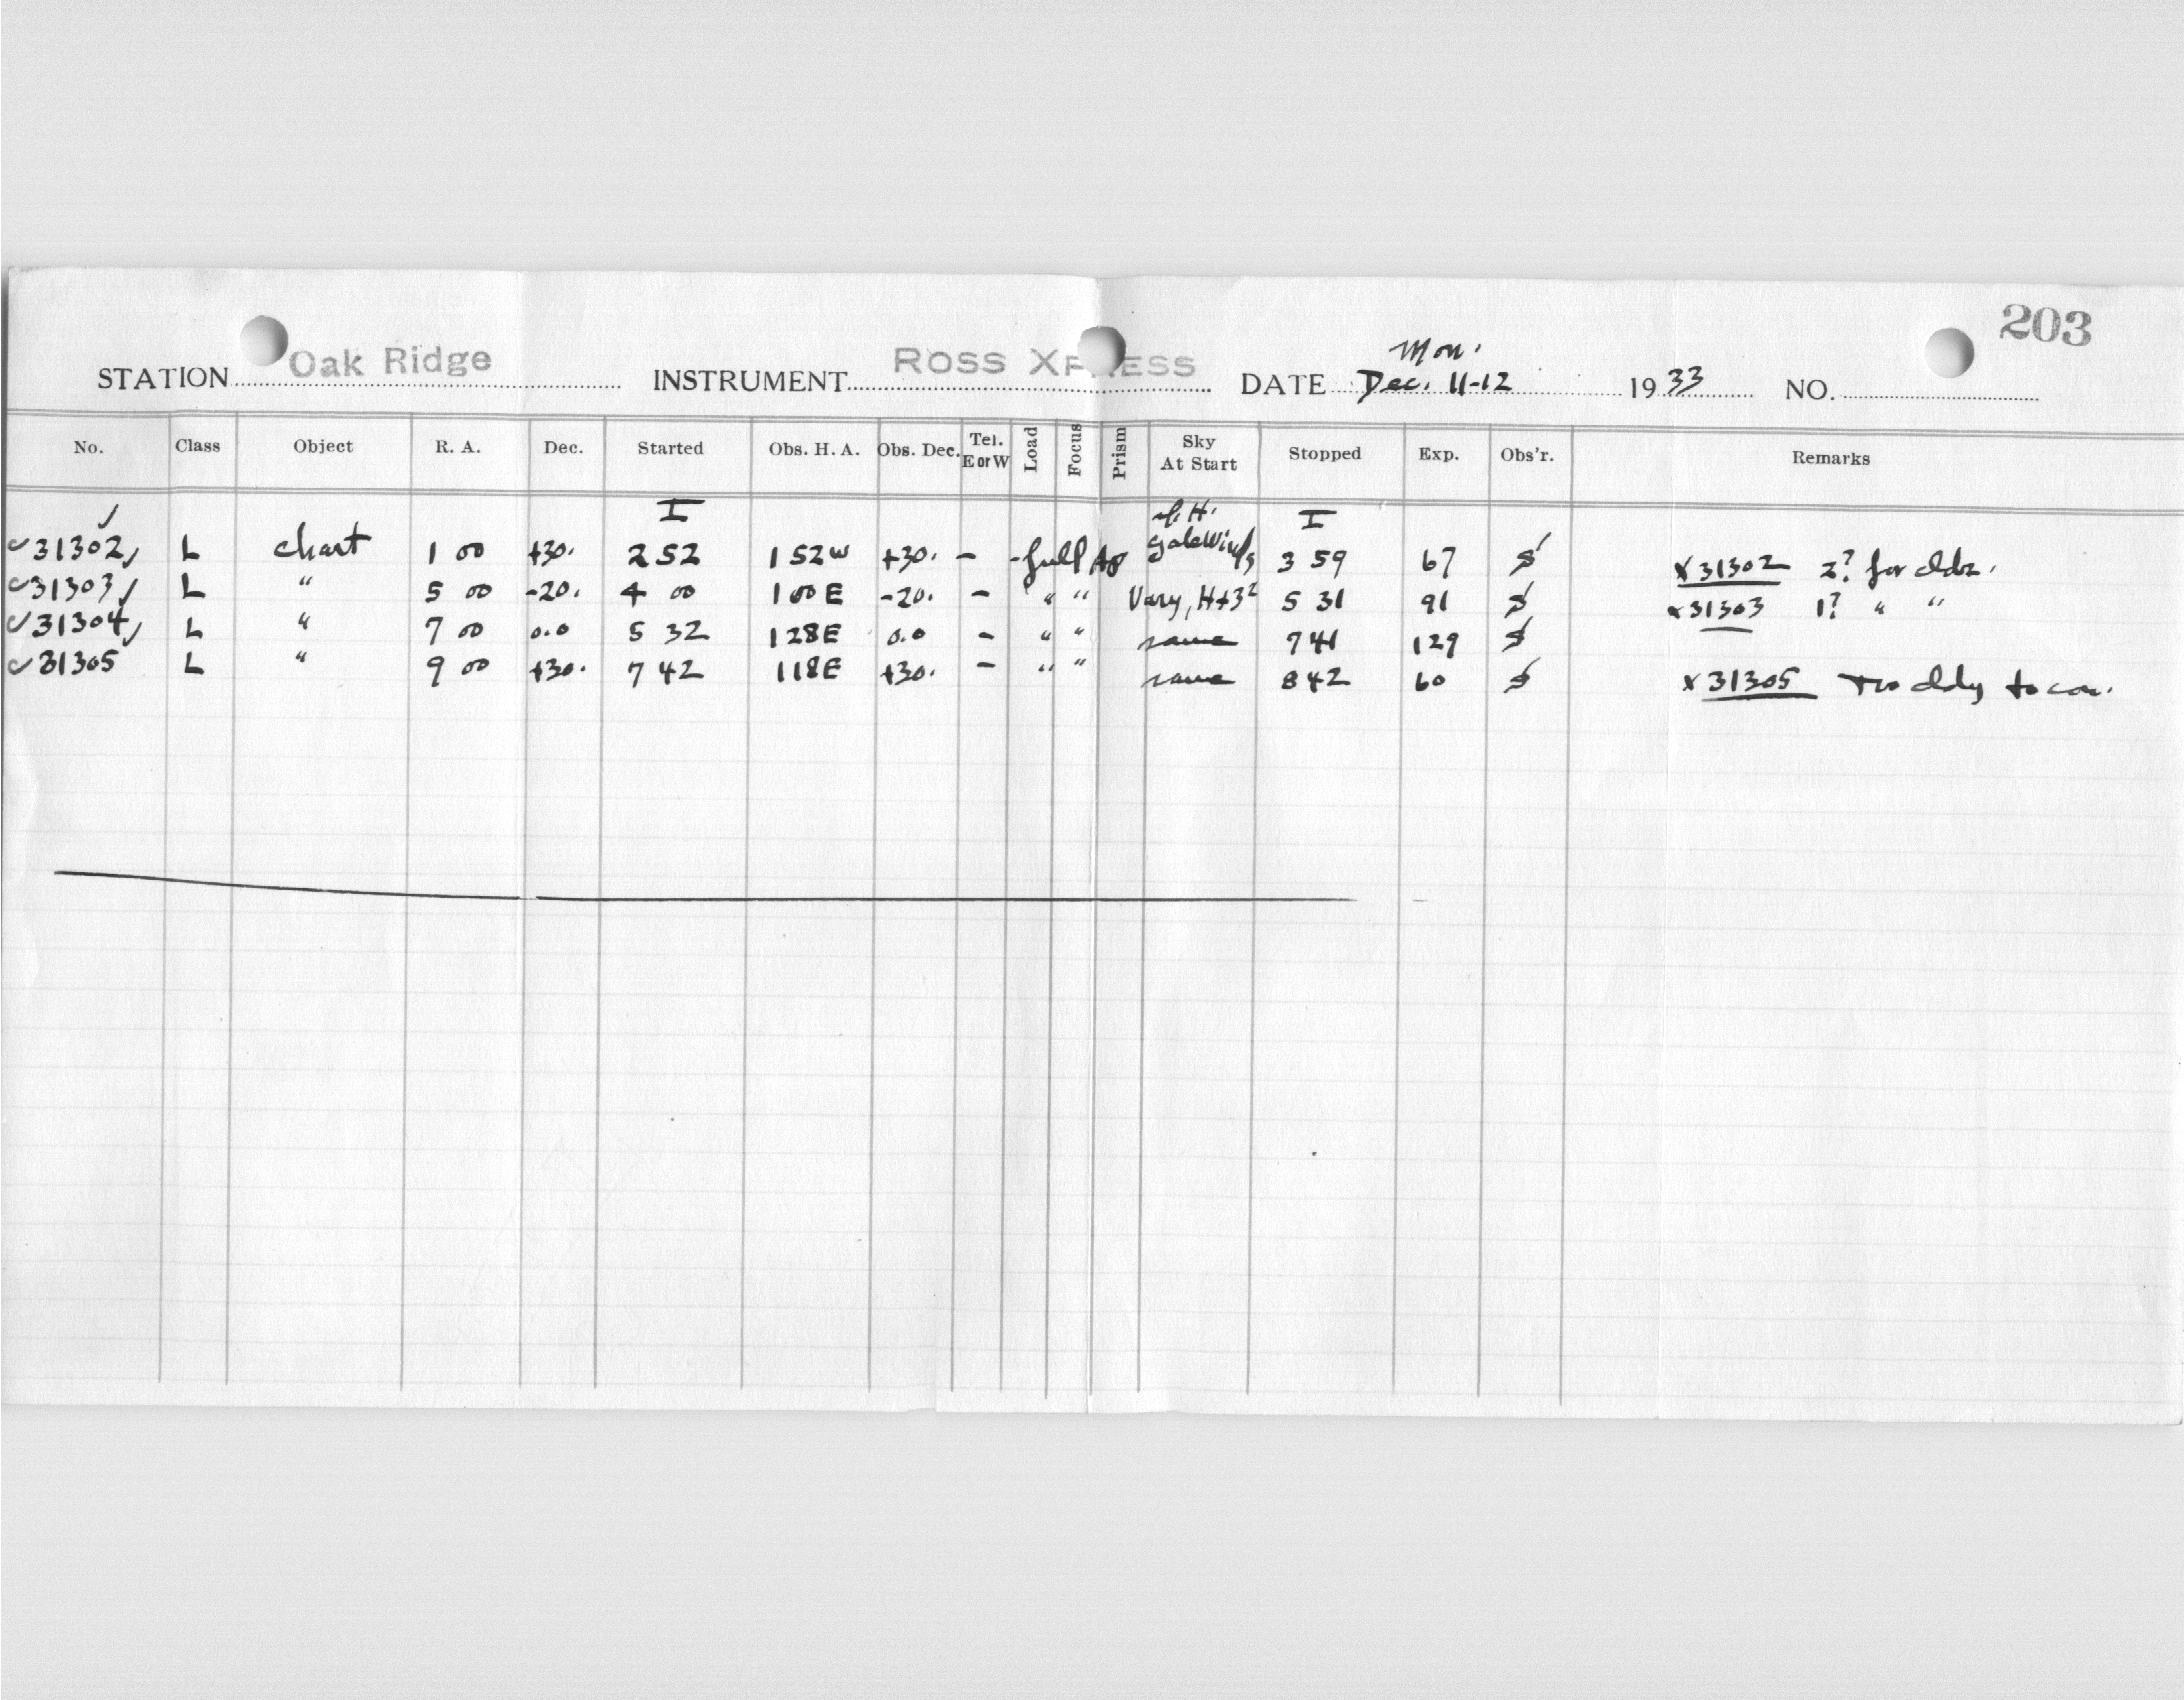 203
STATION Oak Ridge INSTRUMENT ROSS XPRESS DATE Mon. Dec. 11-12 1933 NO.
No. Class Object R. A. Dec. Started Obs. H. A. Obs. Dec. Tel. E or W Load Focus Prism Sky At Start Stopped Exp. Obs'r. Remarks
I I
31302 L chart 1 00 +30. 2 52 1 52 W +30. - - full Ap gale Winds 3 59 67 S x31302 2? for cldz.
31303 L " 5 00 -20. 4 00 1 00 E -20. - " " Vary, H+3² 5 31 91 S x31303 1? " "
31304 L " 7 00 0.0 5 32 1 28 E 0.0 - " " same 7 41 129 S
31305 L " 9 00 +30. 7 42 1 18 E +30. - " " same 8 42 60 S x31305 Too cldy to con.